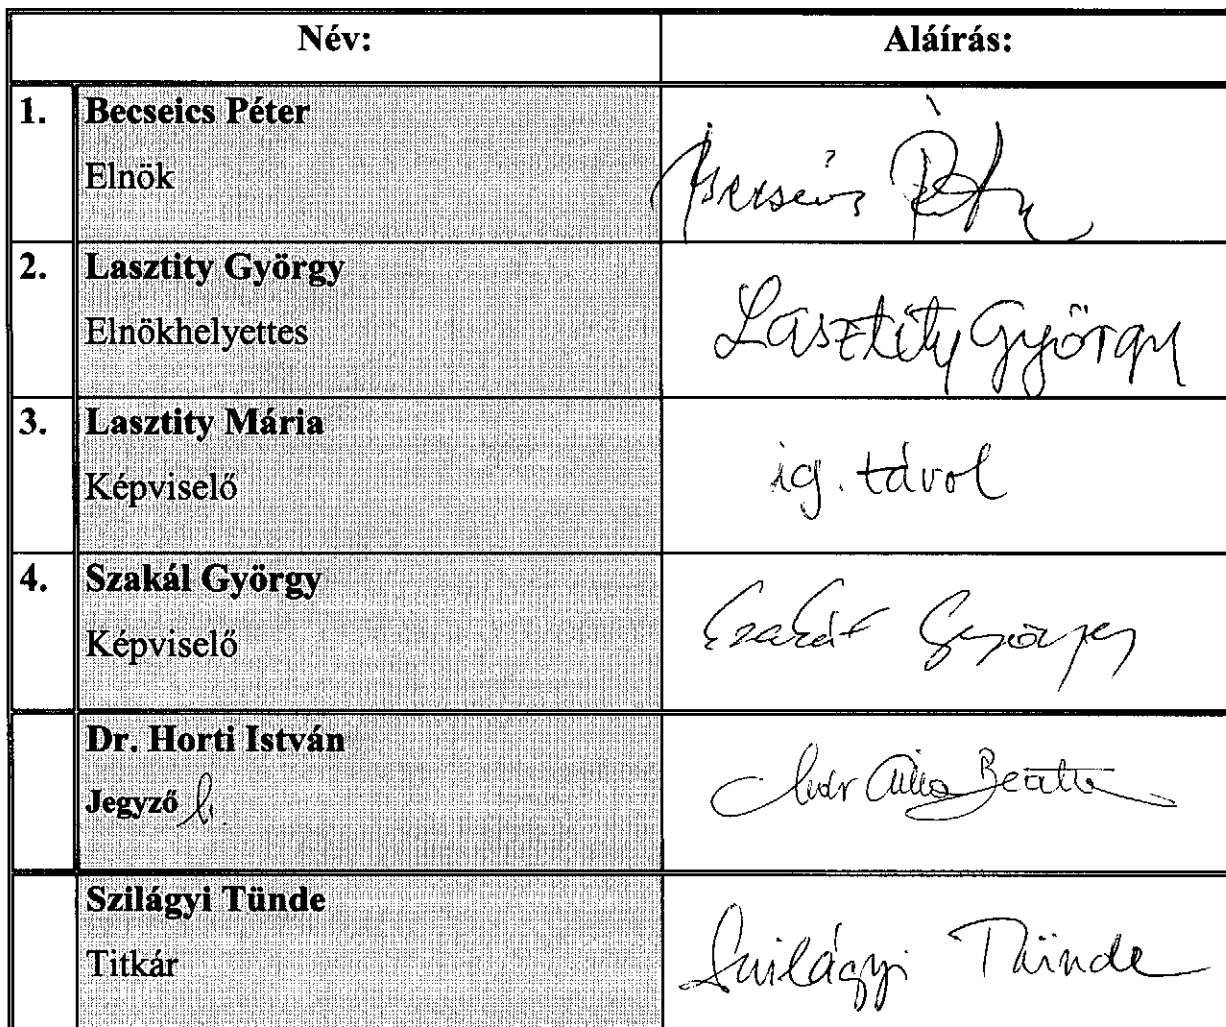 Név: Aláírás:
1. Becseics Péter
Elnök
Becseics Péter
2. Lasztity György
Elnökhelyettes
Lasztity György
3. Lasztity Mária
Képviselő
ig. távol
4. Szakál György
Képviselő
Szakál György
Dr. Horti István
Jegyző h.
Beáta
Szilágyi Tünde
Titkár
Szilágyi Tünde